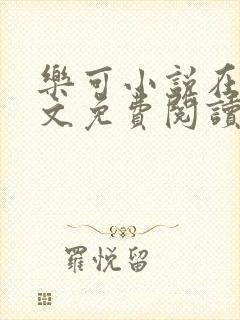 樂可小說在
文免費閱讀
羅悅留